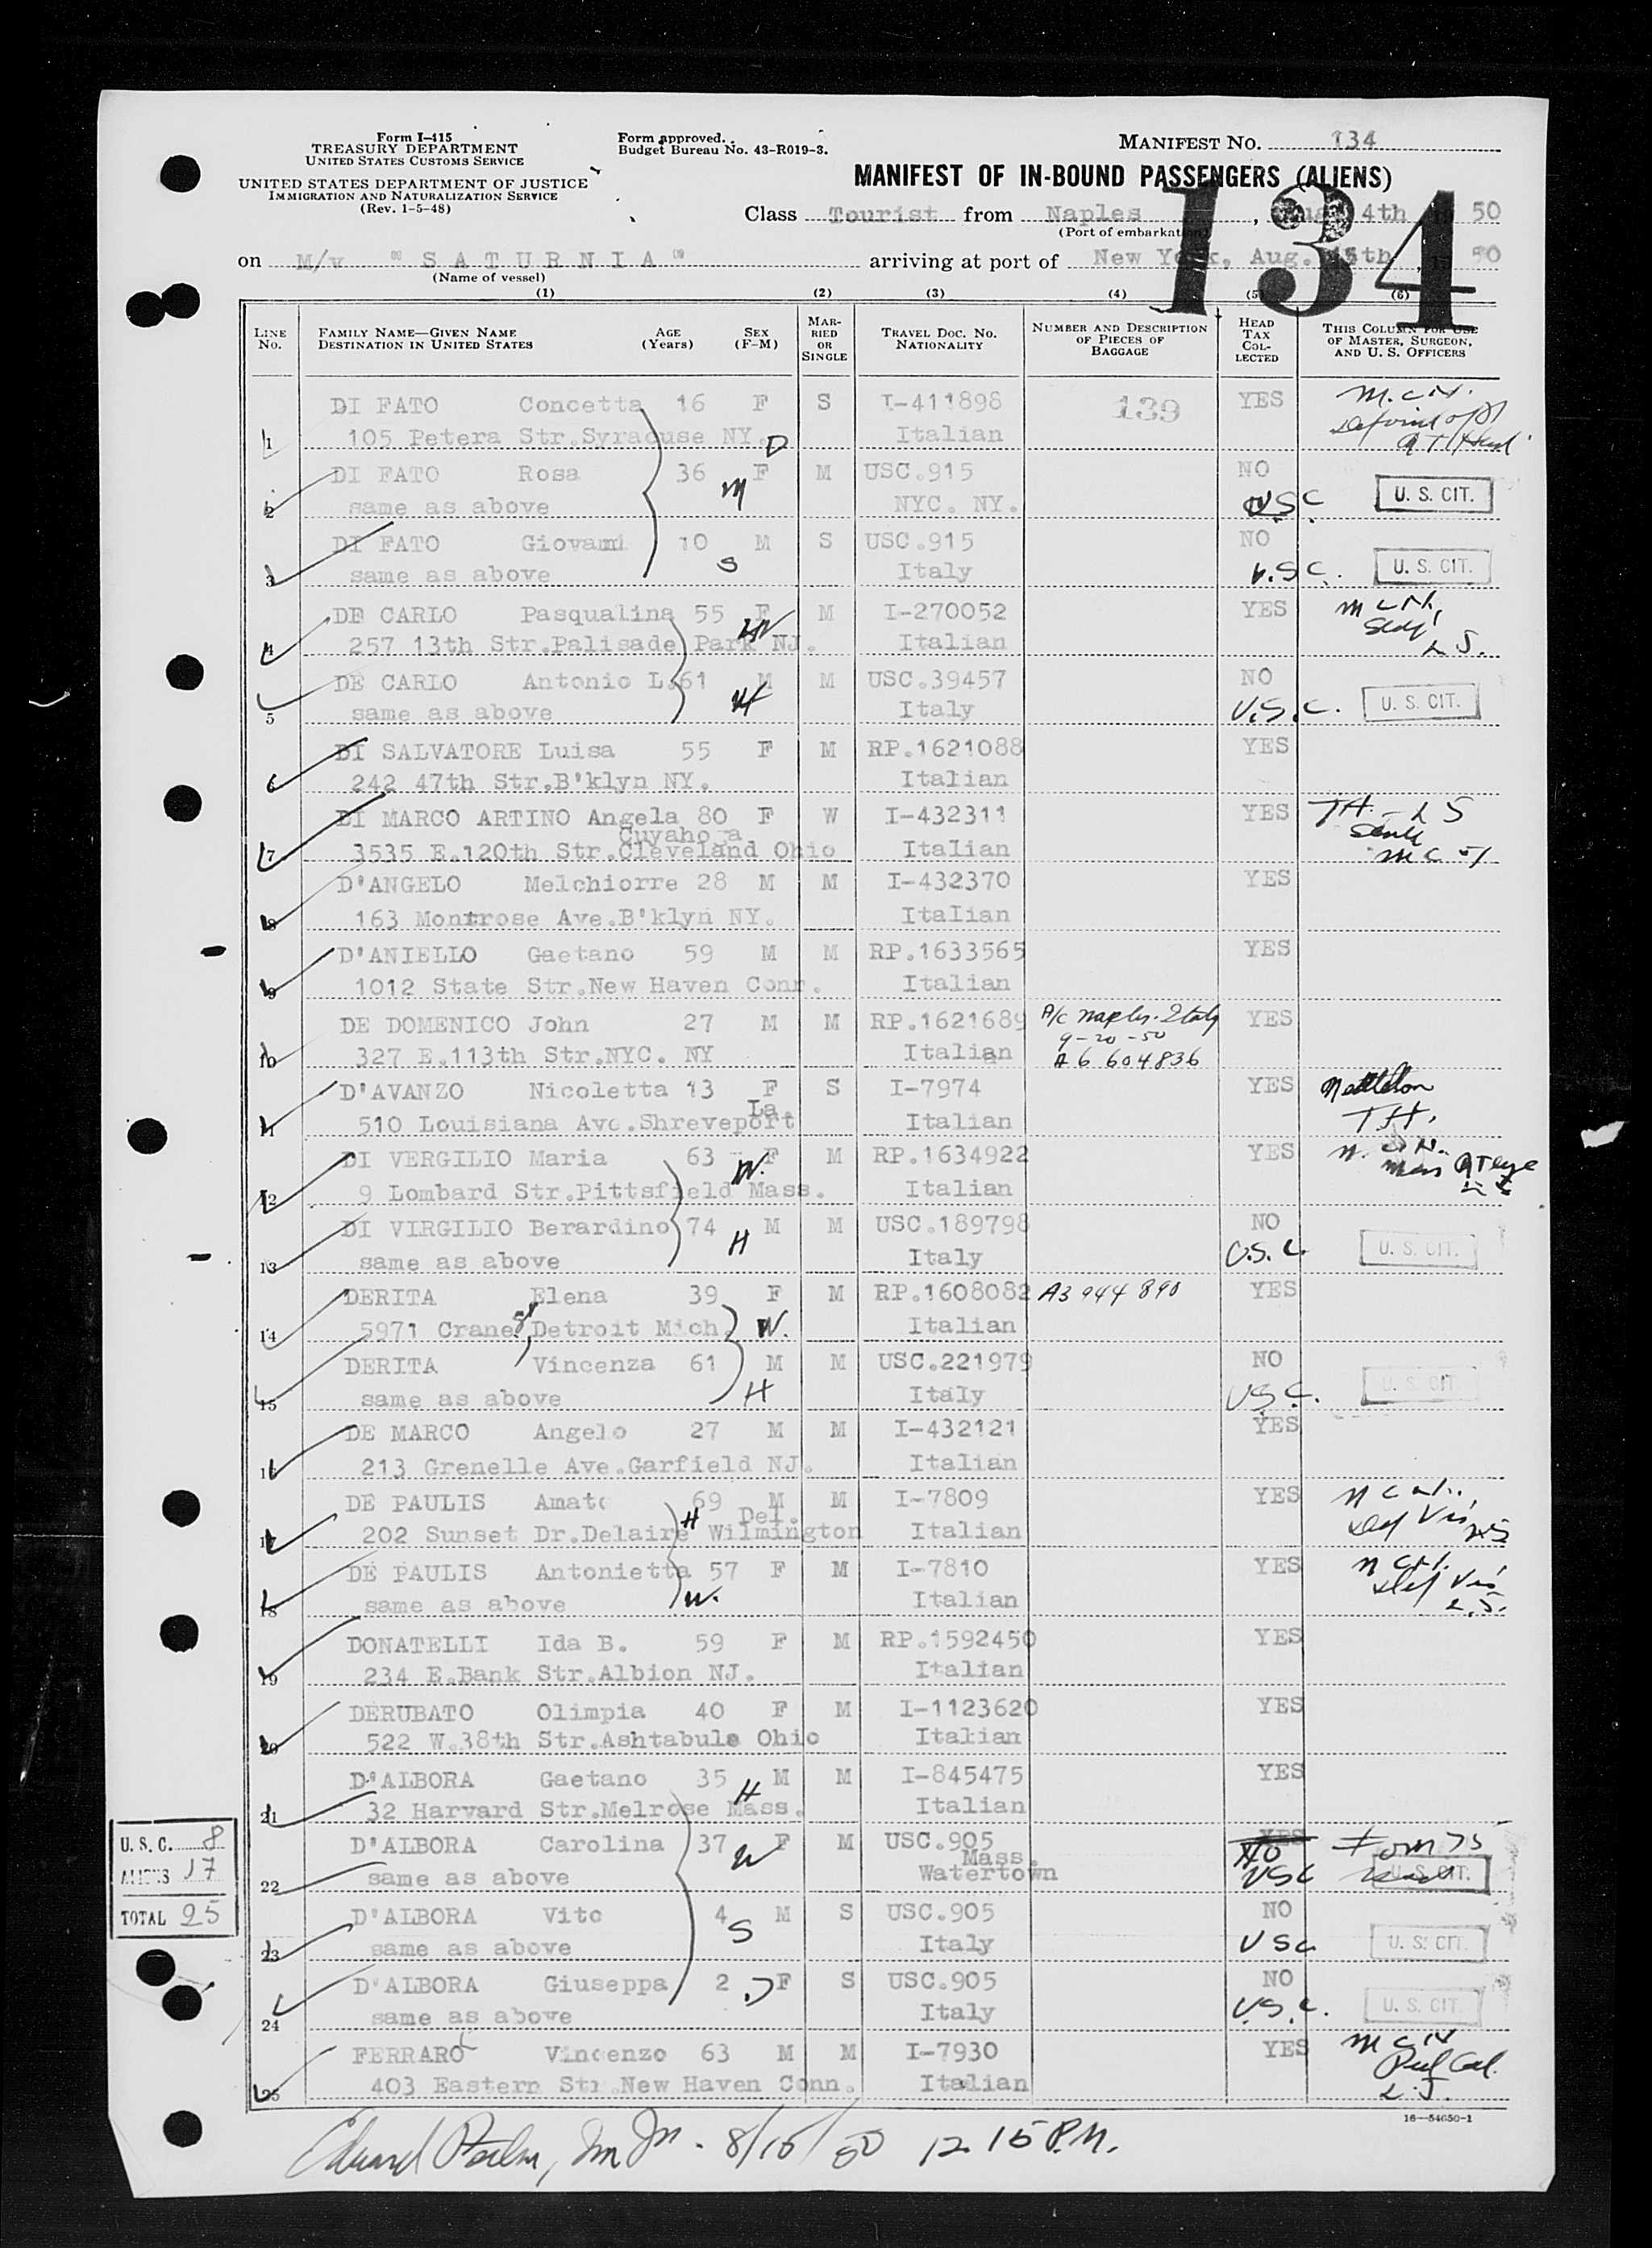 Form I-415
TREASURY DEPARTMENT
UNITED STATES CUSTOMS SERVICE
UNITED STATES DEPARTMENT OF JUSTICE
IMMIGRATION AND NATURALIZATION SERVICE
(Rev. 1-5-48)
Form approved.
Budget Bureau No. 43-R019-3.
MANIFEST NO. 134
MANIFEST OF IN-BOUND PASSENGERS (ALIENS)
134
Class Tourist from Naples, 4th 50
(Port of embarkation)
on M/v "SATURNIA" arriving at port of New York, Aug. 15th, 50
(Name of vessel)
(1) (2) (3) (4) (5) (6)
LINE No. FAMILY NAME—GIVEN NAME DESTINATION IN UNITED STATES AGE (Years) SEX (F-M) MARRIED OR SINGLE TRAVEL DOC. NO. NATIONALITY NUMBER AND DESCRIPTION OF PIECES OF BAGGAGE HEAD TAX COLLECTED THIS COLUMN FOR USE OF MASTER, SURGEON, AND U. S. OFFICERS
DI FATO Concetta 16 F S I-411898 139 YES
1 105 Petera Str.Syracuse NY. D Italian
DI FATO Rosa 36 F M USC.915 NO
2 same as above M NYC. NY. USC U. S. CIT.
DI FATO Giovanni 10 M S USC.915 NO
3 same as above S Italy U.S.C. U. S. CIT.
DE CARLO Pasqualina 55 F M I-270052 YES
4 257 13th Str.Palisade Park NJ. W Italian
DE CARLO Antonio L. 61 M M USC.39457 NO
5 same as above H Italy U.S.C. U. S. CIT.
DI SALVATORE Luisa 55 F M RP.1621088 YES
6 242 47th Str.B'klyn NY. Italian
DI MARCO ARTINO Angela 80 F W I-432311 YES
Cuyahoga
7 3535 E.120th Str.Cleveland Ohio Italian
D'ANGELO Melchiorre 28 M M I-432370 YES
8 163 Montrose Ave.B'klyn NY. Italian
D'ANIELLO Gaetano 59 M M RP.1633565 YES
9 1012 State Str.New Haven Conn. Italian
DE DOMENICO John 27 M M RP.1621689 A/c Naples. Italy YES
9-20-50
10 327 E.113th Str.NYC. NY Italian A6 604836
D'AVANZO Nicoletta 13 F S I-7974 YES
La.
11 510 Louisiana Ave.Shreveport Italian
DI VERGILIO Maria 63 W. F M RP.1634922 YES
12 9 Lombard Str.Pittsfield Mass. Italian
DI VIRGILIO Berardino 74 M M USC.189798 NO
13 same as above H Italy U.S.C. U. S. CIT.
DERITA Elena 39 F M RP.1608082 A3 944 890 YES
14 5971 Crane St, Detroit Mich W. Italian
DERITA Vincenza 61 M M USC.221979 NO
15 same as above H Italy USC. U. S. CIT.
DE MARCO Angelo 27 M M I-432121 YES
16 213 Grenelle Ave.Garfield NJ. Italian
DE PAULIS Amato 69 M M I-7809 YES
Del.
17 202 Sunset Dr.Delaire Wilmington H Italian
DE PAULIS Antonietta 57 F M I-7810 YES
18 same as above W. Italian
DONATELLI Ida B. 59 F M RP.1592450 YES
19 234 E.Bank Str.Albion NJ. Italian
DERUBATO Olimpia 40 F M I-1123620 YES
20 522 W.38th Str.Ashtabula Ohio Italian
D'ALBORA Gaetano 35 H M M I-845475 YES
21 32 Harvard Str.Melrose Mass. Italian
D'ALBORA Carolina 37 W F M USC.905 YES NO
Mass.
22 same as above Watertown USC U. S. CIT.
D'ALBORA Vito 4 M S USC.905 NO
23 same as above S Italy USC U. S. CIT.
D'ALBORA Giuseppa 2 D F S USC.905 NO
24 same as above Italy U.S.C. U. S. CIT.
FERRARO Vincenzo 63 M M I-7930 YES
25 403 Eastern Str.New Haven Conn. Italian
U. S. C. 8
ALIENS 17
TOTAL 25
16—54650-1
8/15/50 12 15 P.M.